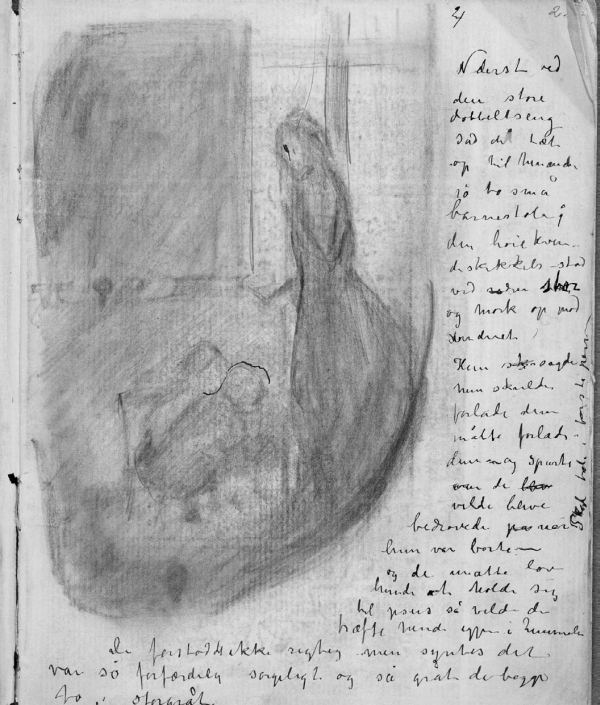 4 2.
Nederst ved
den store
dobbeltseng
sad de tæt
op til hinanden
på to små
barnestole
den høie kvin-
deskikkelse stod
ved siden stor
og mørk op mod
vinduet
Hun sagde
hun skulde
forlade dem
måtte forlade
dem og spurte
om de
vilde blive
bedrøvede når
hun var borte
og de måtte love
hende at holde sig
til Jesus så vilde de
træffe hende igjen i himmelen
De forstod ikke rigtig men syntes det
var så forfærdelig sørgeligt og så gråt de begge
to i storgråt.